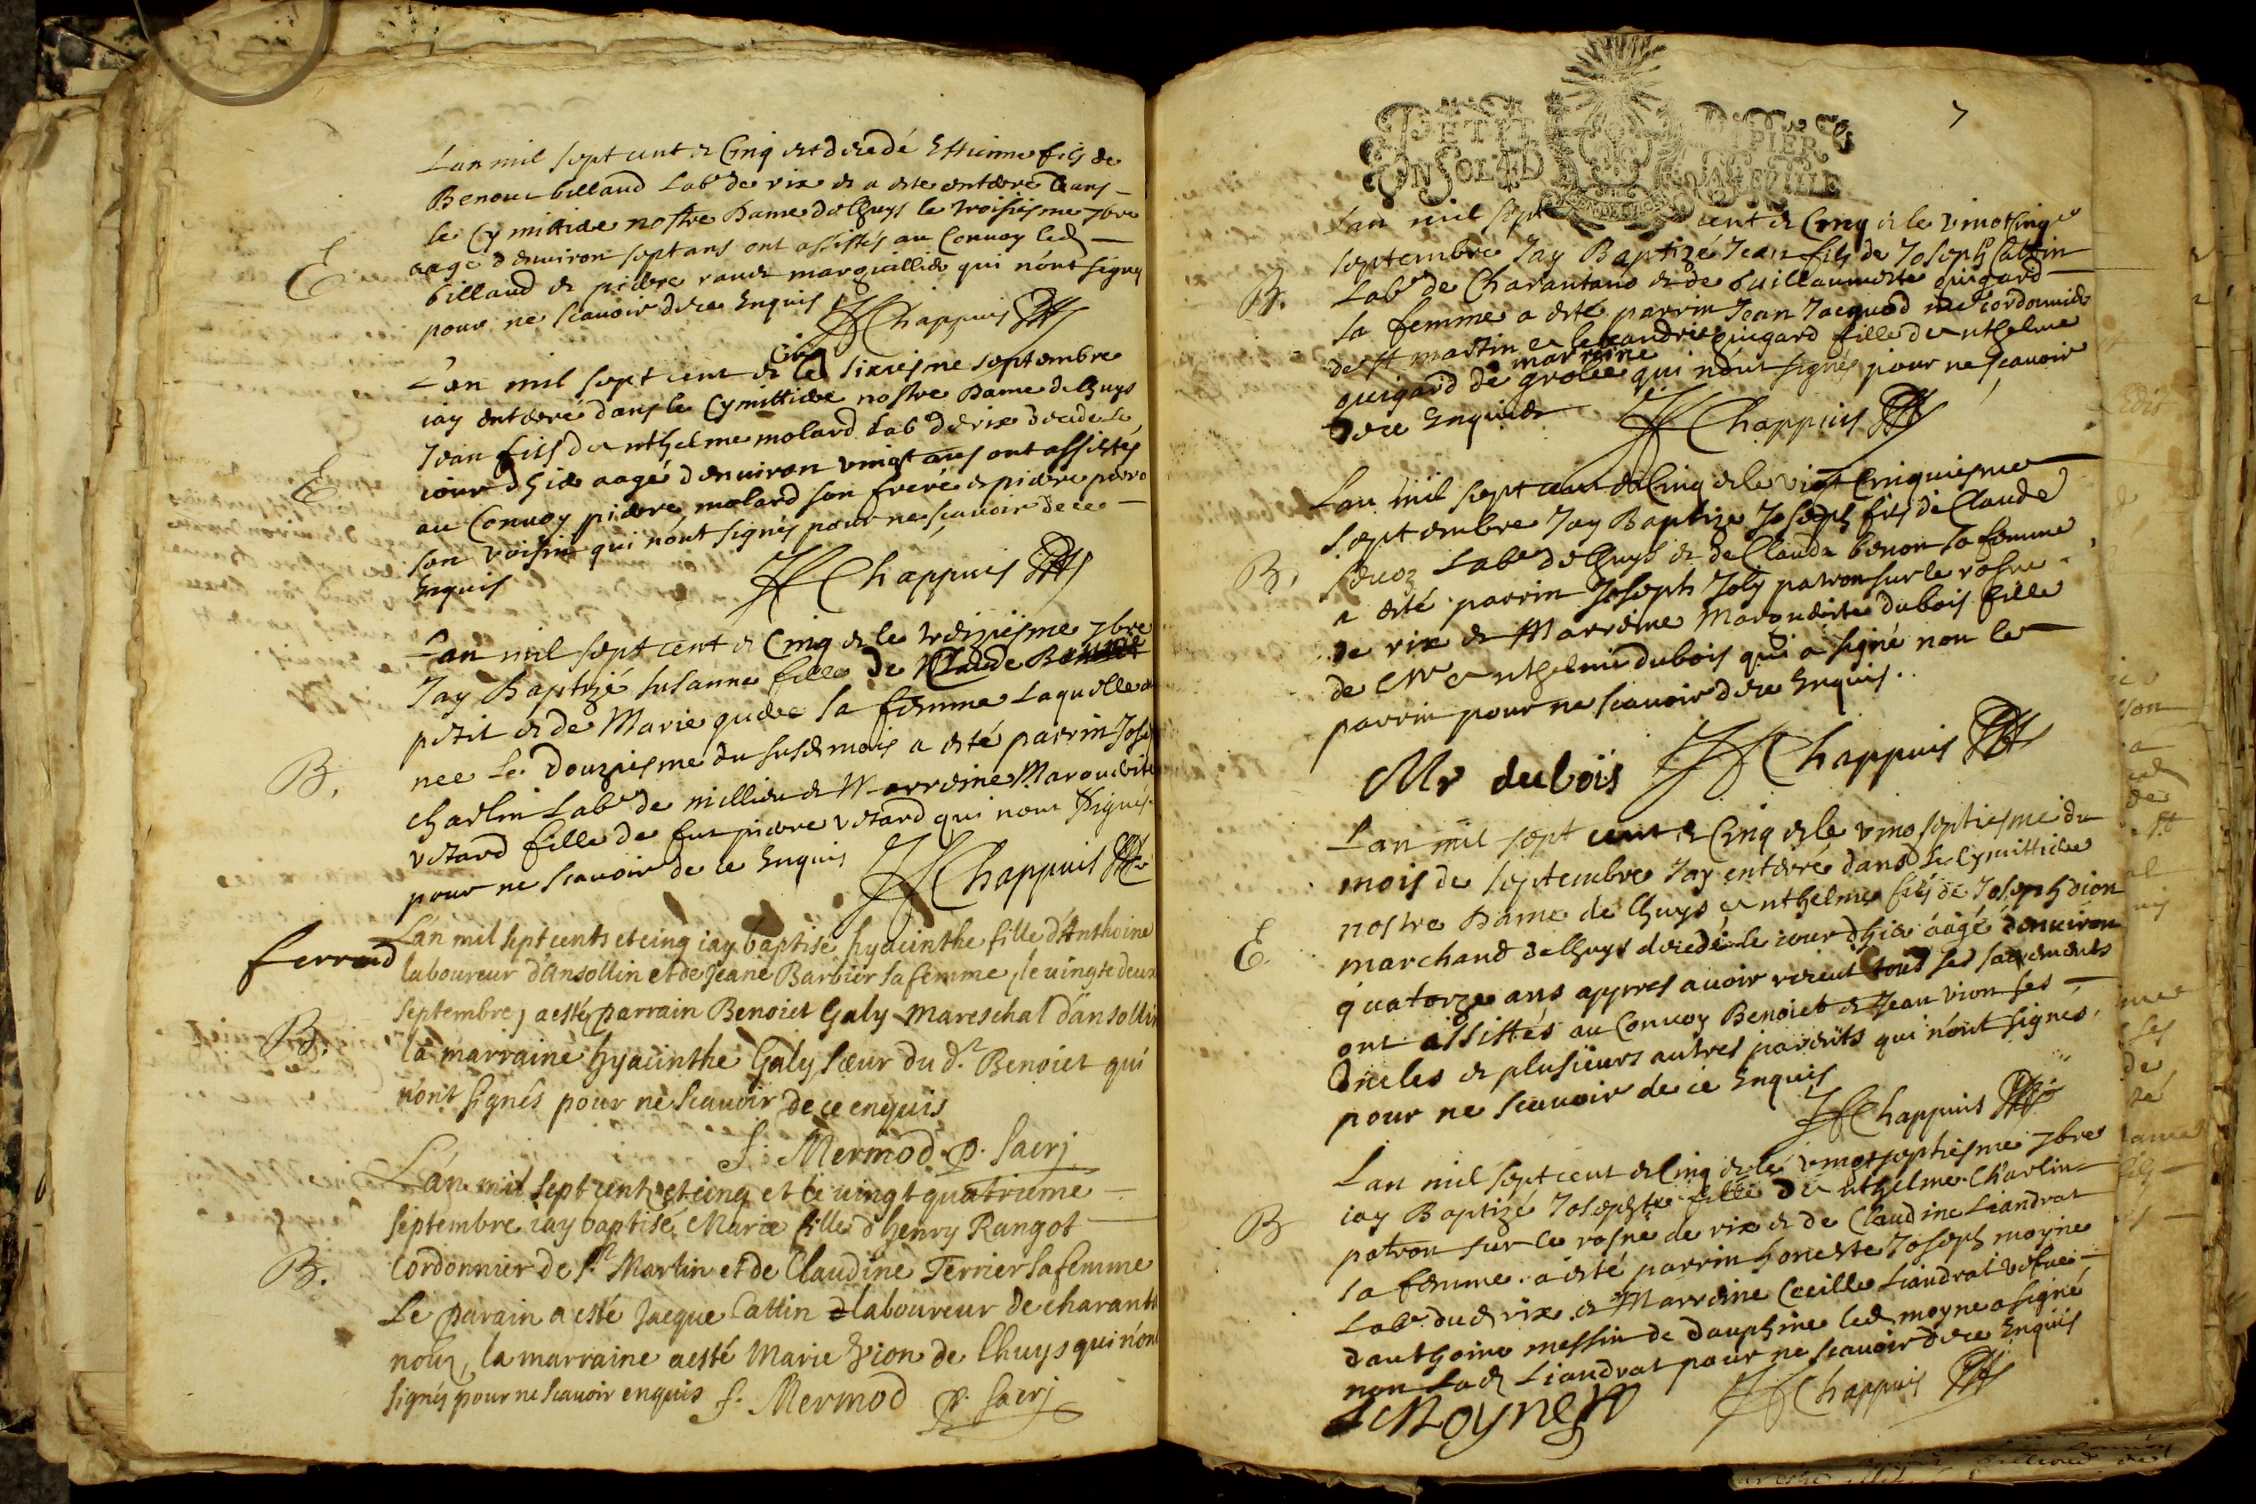 Lan mil sept cent & Cinq est decedé Estienne fils de
Benoict billaud Labr de rix & a esté enterré dans
le Cymittiere nostre Dame de Lhuys le troisiesme 7bre
aagé d'environ sept ans ont assistés au Convoy led
billaud & pierre marguillier qui n'ont signés
pour ne scavoir de ce Enquis Chappuis
E
L'an mil sept cent & Cinq & le sixiesme septembre
iay enterré dans le Cymittiere nostre Dame de Lhuys
Jean fils d'Anthelme molard Lab de rix decedé le
iour d'hier aagé d'environ vingt ans ont assistés
au Convoy pierre molard son frere & pierre
son voisin qui n'ont signés pour ne scavoir de ce
Enquis Chappuis
E
Lan mil sept cent & Cinq & le treiziesme 7bre
Jay Baptizé susanne fille de Claude
petit & de Marie sa femme Laquelle
nee Le douziesme du susd mois a esté parrin
charlin Labr de millieu & Marreine Marguerite
vetard fille de fut pierre vetard qui n'ont signés
pour ne scavoir de ce Enquis Chappuis
B.
ferrand
L'an mil sept cents et cinq iay baptisé hyacinthe fille d'Anthoine
laboureur d'Ansollin et de Jeane Barbier sa femme, le vingte deux
septembre, a esté parrain Benoiet Galy mareschal d'ansollin
la marraine hyacinthe Galy sœur du dt Benoiet qui
n'ont signés pour ne scavoir de ce enquis
f. Mermod p. sacrj
B.
L'an mil sept cent et cinq et le vingt quatrieme
septembre iay baptisé Marie fille d'henry Rangot
Cordonnier de st Martin et de Claudine Terrier sa femme
Le parain a esté Jacque Cattin laboureur de charanto
noux, la marraine a esté Marie Vion de lhuys qui n'ont
signés pour ne scavoir enquis f. Mermod p. sacrj
B.
7
PETIT PAPIER
EN SOL LA FEUILLE
Lan mil sept cent & Cinq & le
septembre Jay Baptizé Jean fils de Joseph Cattin
Labr de Charantano & de Guillaumette guigard
sa femme a esté parrin Jean Jacquod me Cordonnier
de st martin & marreine guigard fille d'Anthelme
guigard de grolee qui n'ont signés pour ne scavoir
de ce Enquis Chappuis
B.
Lan mil sept cent & Cinq & le vint Cinquiesme
septembre Jay Baptize Joseph fils de Claude
Labr de Lhuys & de Clauda benon sa femme
a esté parrin Joseph Joly patron sur le rosne
de rix & Marreine Marguerite dubois fille
de Mr Anthelme dubois qui a signé non le
parrin pour ne scavoir de ce Enquis.
Mr dubois Chappuis
B.
Lan mil sept cent & Cinq & le vint septiesme du
mois de septembre Jay enterré dans le Cymittiere
nostre Dame de Lhuys Anthelme fils de Joseph dion
marchand de Lhuys decedé le iour d'hier aagé denviron
quatorze ans appres avoir receut tous ses sacrements
ont assistés au Convoy Benoiet & Jean vion ses
Oncles & plusieurs autres parents qui n'ont signés
pour ne scavoir de ce Enquis
Chappuis
E.
Lan mil sept cent & Cinq & le vingt septiesme 7bre
iay Baptizé Josephte fille d'Anthelme Charlin
patron sur le rosne de rix & de Claudine Liandrat
sa femme a esté parrin honeste Joseph moyne
Labr dud rix & Marreine Cecille Liandrat vefue
d'anthoine messin de dauphine led moyne a signé
non Lad Liandrat pour ne scavoir de ce Enquis
Moyne Chappuis
B